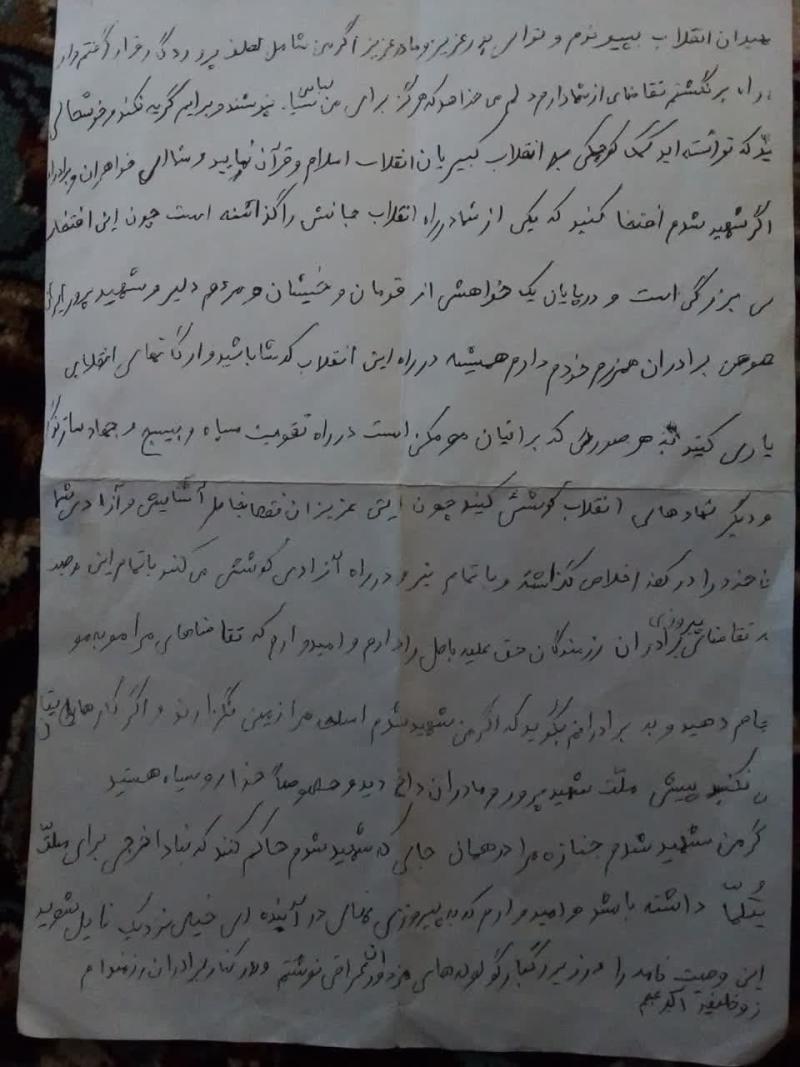 هیدان انقلاب بپیوندم و توای پدر عزیز و مادر عزیز اگر من شامل لطف پروردگار قرار گرفتم و از
راه برنگشتم تقاضای از شما دارم دلم می خواهد که هرگز برای من لباس سیاه نپوشند و برایم گریه نکند و خوشحالی
ید که توانسته اید کمک کوچکی به انقلاب کبیر یان انقلاب اسلام و قرآن نمایید و شما ای خواهران و برادران
اگر شهید شدم افتخا کنید که یکی از شما در راه انقلاب جانش را گذاشته است چون این افتخار
س بزرگی است و در پایان یک خواهشی از قومان و خیشان و مردم دلیر و شهید پرور
هوطن برادران همرزم خودم دارم همیشه در راه این انقلاب کوشا باشید و ارگانهای انقلابی
یاری کنید به هر صورتی که براتیان مومکن است در راه تقویت سپاه و بسیج و جهاد سازندگی
و دیگر نهادهای انقلاب کوشش کنید چون این عزیزان فقط بخاطر آسایش و آزادی شما
جان خود را در کف اخلاص گذاشته و با تمام نیرو در راه آزادی کوشش می کنند با تمام این وجود
تقاضای پیروزی برادران رزمندگان حق علیه باطل را دارم و امیدوارم که تقاضاهای مرا مو به مو
جام دهید و به برادرانم بگویید که اگر من شهید شدم اسلحه مرا زمین نگزارند و اگر کارهای
نکنید پیش ملت شهید پرور و مادران داغ دیده و خصوصاً خدا رو سیاه هستید
گر من شهید شدم جنازه مرا در همان جای که شهید شدم خاکم کنند که مبادا خرجی برای ملت
داشته باشد و امیدوارم که به پیروزی نهای در آینده ای خیلی نزدیک نایل شوید
این وصیت نامه را در زیر رگبار گولوله های مزدوران عراقی نوشتم و در کنار برادران رزمنده ام